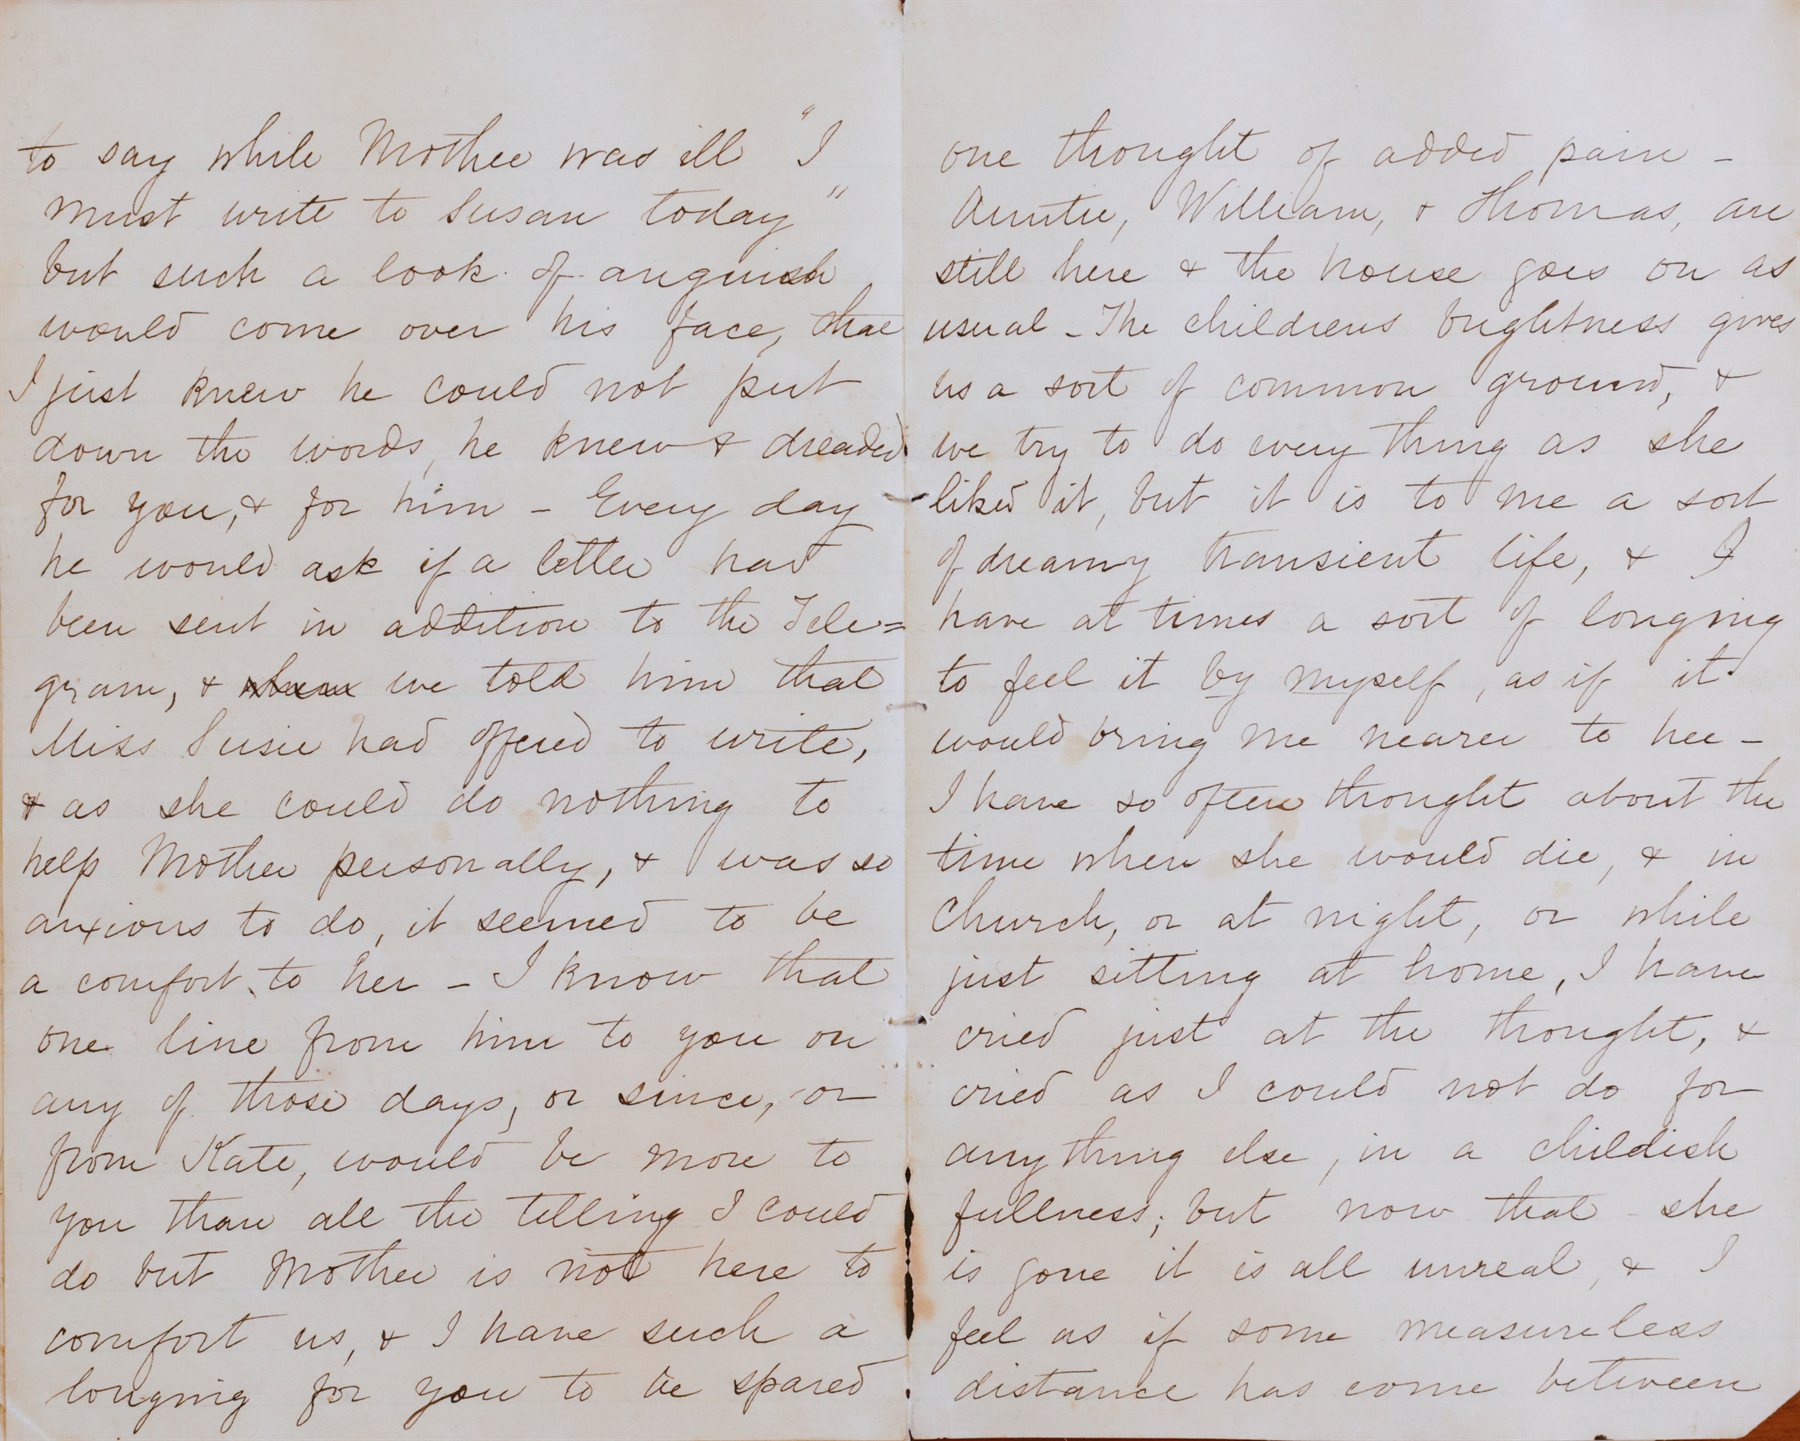 to say while Mother was ill "I
must write to Susan today"
but such a look of anguish
would come over his face, that
I just knew he could not put
down the words, he knew & dreaded
for you, & for him – Every day
he would ask if a letter had
been sent in addition to the Tele=
gram, & we told him that
Miss Susie had offered to write,
& as she could do nothing to
help Mother personally, & was so
anxious to do, it seemed to be
a comfort to her – I know that
one line from him to you on
any of those days, or since, or
from Kate, would be more to
you than all the telling I could
do but Mother is not here to
comfort us, & I have such a
longing for you to be spared
one thought of added pain –
Auntie, William, & Thomas, are
still here & the house goes on as
usual – The childrens brightness gives
us a sort of common ground, &
we try to do every thing as she
liked it, but it is to me a sort
of dreamy transient life, & I
have at times a sort of longing
to feel it by myself, as if it
would bring me nearer to her –
I have so often thought about the
time when she would die, & in
Church, or at night, or while
just sitting at home, I have
cried just at the thought, &
cried as I could not do for
any thing else, in a childish
fullness; but now that she
is gone it is all unreal, & I
feel as if some measureless
distance has come between